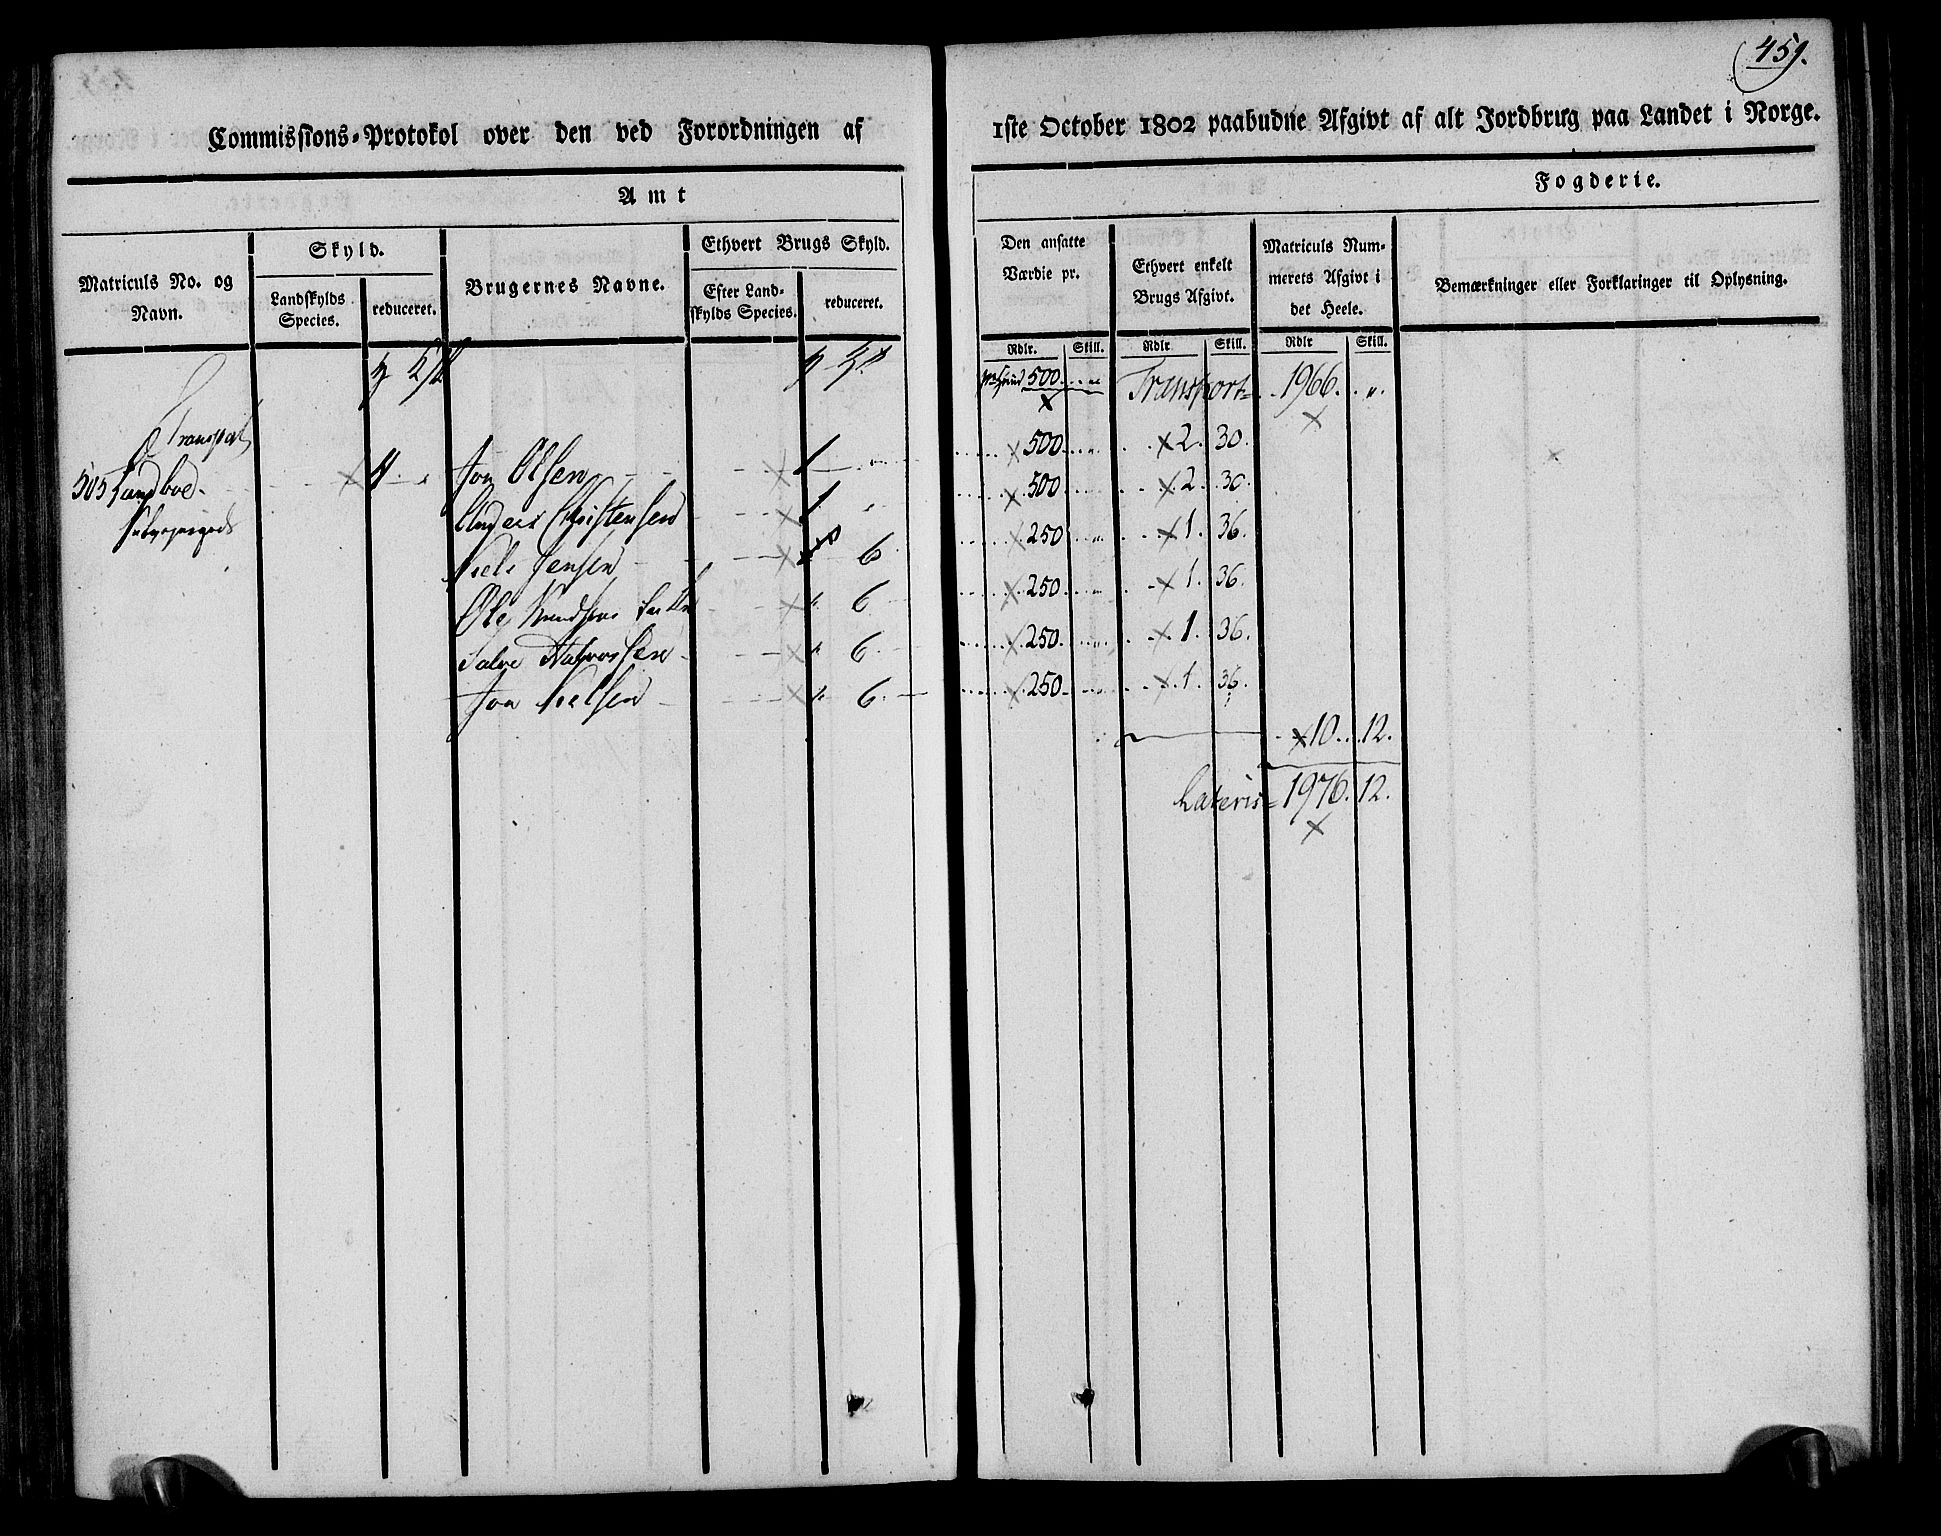 459.
Commissions-Protokol over den ved Forordningen af 1ste October 1802 paabudne Afgivt af alt Jordbrug paa Landet i Norge.
Amt
Fogderie.
Matriculs No. og Navn.
Skyld.
Landskylds Species.
reduceret.
Brugernes Navne.
Ethvert Brugs Skyld.
Efter Landskylds Species.
reduceret.
Den ansatte Værdie pr.
Ethvert enkelt Brugs Afgivt.
Matriculs Nummerets Afgivt i det Heele.
Bemærkninger eller Forklaringer til Oplysning.
Rdlr. Skill. Rdlr Skill. Rdlr Skill.
500 Transport 1966. "
Transport
505 Sandboe 4 Jon Olsen 1 500 2. 30.
Anders Christensen 1 500 2. 30.
Niels Jensen 6 250 1. 36.
Ole Knudsen " 6 250 1. 36.
Salve " 6 250 1. 36.
Jon Nielsen " 6 250 1. 36.
10. 12.
Lateris 1976. 12.